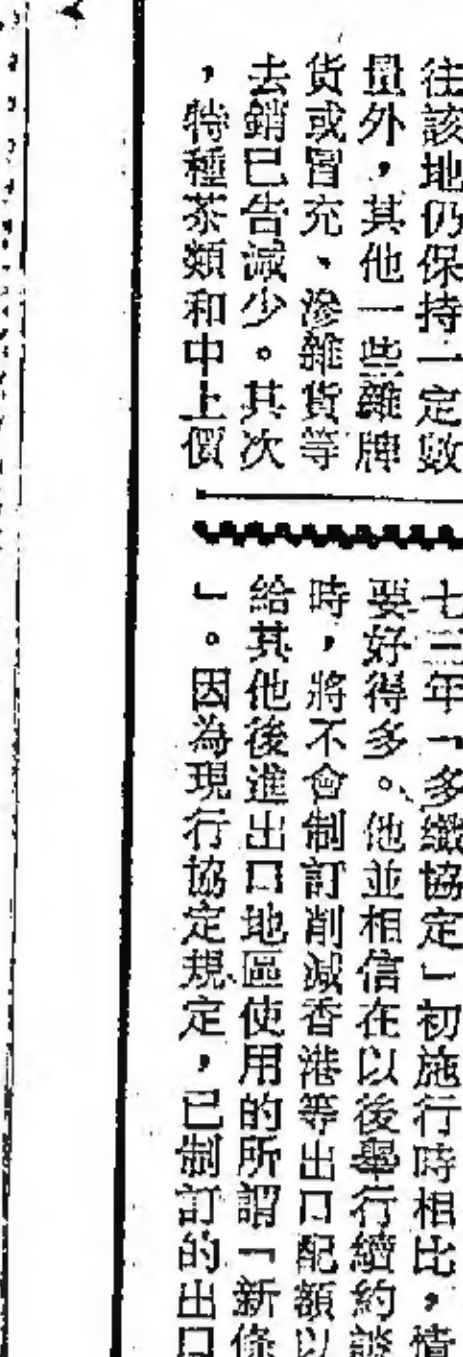 往該地仍保持一定數
量外，其他一些雜牌
貨或冒充、滲雜貨等
去銷已告減少。其次
，特種茶類和中上價
七三年「多纖協定」初施行時相比，情
要好得多。他並相信在以後舉行續約談
時，將不會制訂削減香港等出口配額以
給其他後進出口地區使用的所謂「新條
」。因為現行協定規定，已制訂的出口